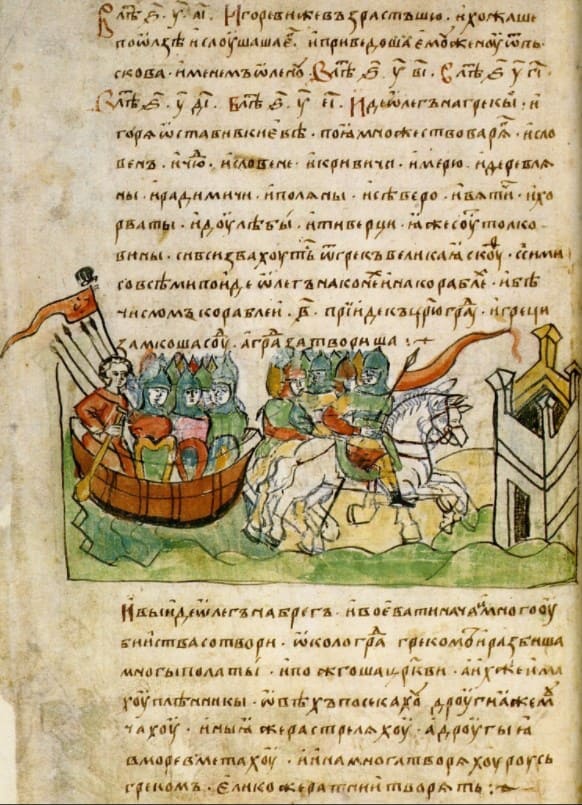 В лѣⷮ ҂ѕ҃ у҃ аі҃ Игореви же взрастъшю . и хожаше
по ѡлзѣ и слоушаша єⷢ . и приведоша ємоу женоу ѿ пь
скова . именемъ ѡленоу В лѣⷮ ҂ѕ҃ у҃ ві҃ . В лѣⷮ ҂ѕ҃ у҃ гі҃
В лѣⷮ ҂ѕ҃ у҃ ді҃ . В лѣⷮ ҂ѕ҃ у҃ єі҃ . Иде ѡлегъ на грекы . и
горѧ ѡстави в києвѣ . поꙗ множество варѧⷢ . и сло
венъ . и чюⷣ . и словене . и кривичи . и мерю . и деревлѧ
ны . и радимичи . и полѧны . и сѣверо . и вѧтичи . и хо
рваты . и доулѣбы . и тиверци . ꙗже соуть толко
вины . си вси звахоутьⷭ ѿ грекъ великаꙗ скоуⷴ . с сими
со всеми поиде ѡлегъ на конеⷯ и на кораблеⷯ . и бѣ
числомъ кораблей . в҃ . прїиде къ црⷭ҇юградоу . и греци
замкоша соуⷣ . а граⷣ затвориша :
И выиде ѡлегъ на брегъ . и воєвати нача . и много оу
бийства сотвори . ѡколо граⷣ грекомъ . и разбиша
многы полаты . и пожгоша цр҃кви . а ихже има
хоу плѣнникы . ѡвѣхъ посекахоу дроугиꙗ же мѫ
чахоу . иныꙗ же растрелѧхоу . а дроугыꙗ
в море вметахоу . и ина многа творѧхоу роусь
грекомъ . елико же ратнии творѧть :